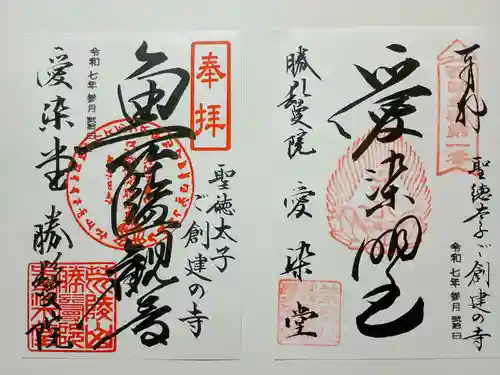 奉拝
聖徳太子ご創建の寺
令和七年参月弐拾日
愛染明王
勝鬘院 愛染堂
奉拝
聖徳太子
ご創建の寺
魚籃観音
令和七年参月弐拾日
愛染堂 勝鬘院